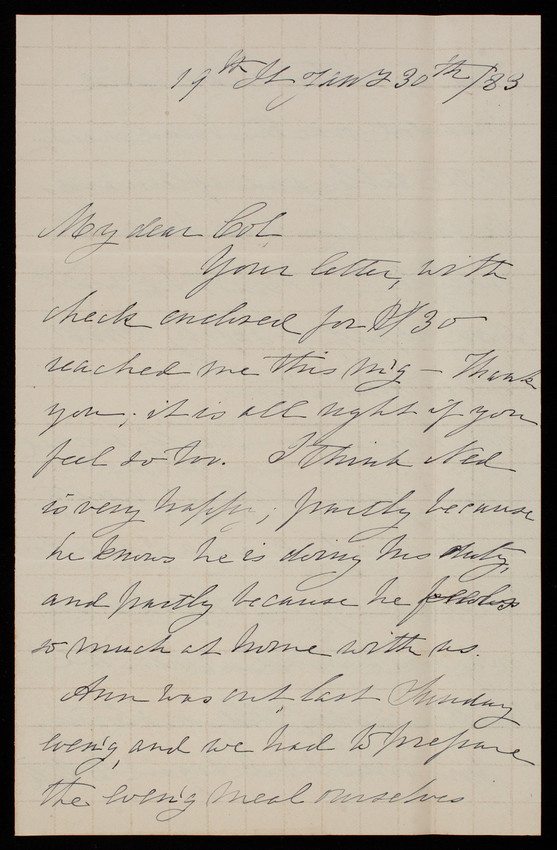 19th St Jany 30th/83
My dear Col
Your letter, with
check enclosed for $30
reached me this m'g - Thank
you; it is all right if you
feel so too. I think Ned
is very happy; partly because
he knows he is doing his duty,
and partly because he feels
so much at home with us.
Ann was out, last Sunday
even'g, and we had to prepare
the even'g meal ourselves